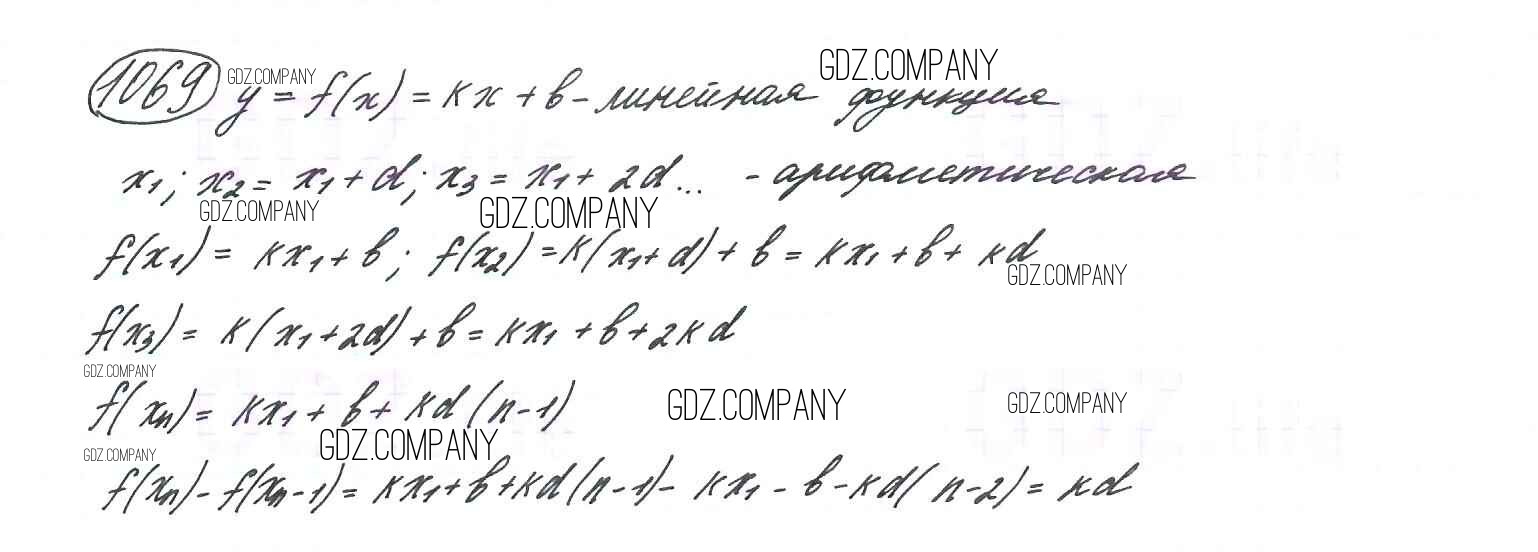 1069 GDZ.COMPANY y = f(x) = kx + b - линейная функция GDZ.COMPANY
x₁; x₂ = x₁ + d; x₃ = x₁ + 2d... - арифметическая
GDZ.COMPANY GDZ.COMPANY
f(x₁) = kx₁ + b; f(x₂) = k(x₁ + d) + b = kx₁ + b + kd
GDZ.COMPANY
f(x₃) = k(x₁ + 2d) + b = kx₁ + b + 2kd
GDZ.COMPANY
f(xₙ) = kx₁ + b + kd(n-1) GDZ.COMPANY GDZ.COMPANY
GDZ.COMPANY GDZ.COMPANY
f(xₙ) - f(xₙ-1) = kx₁ + b + kd(n-1) - kx₁ - b - kd(n-2) = kd